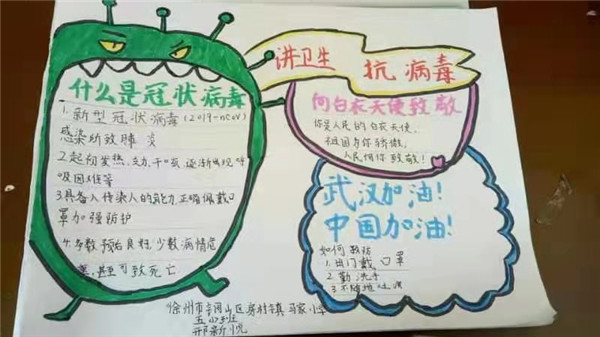 讲卫生 抗病毒
什么是冠状病毒
1. 新型冠状病毒(2019-nCoV)
感染所致肺炎
2.起初发热、乏力、干咳、逐渐出现呼
吸困难等
3.具备人传染人的能力,正确佩戴口
罩加强防护
4.多数预后良好,少数病情危
重,甚至可致死亡
向白衣天使致敬
你是人民的白衣天使,
祖国为你骄傲,
人民向你致敬!
武汉加油!
中国加油!
如何
1.出门戴口罩
2.勤洗手
3.不随地吐痰
徐州市铜山区房村镇马家小学
五小班
邢新悦